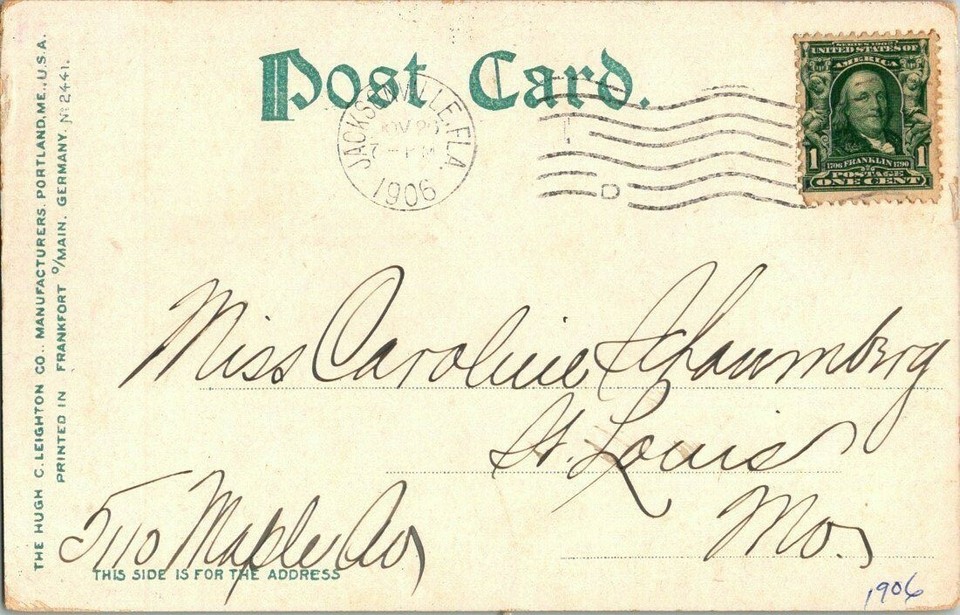 Post Card.
JACKSONVILLE, FLA.
NOV 20
7 - PM
1906
D
SERIES 1902
UNITED STATES OF
AMERICA
1 1706 FRANKLIN 1790 1
POSTAGE
ONE CENT
THE HUGH C. LEIGHTON CO., MANUFACTURERS, PORTLAND, ME., U.S.A.
PRINTED IN FRANKFORT o/MAIN, GERMANY. No 2441.
Miss Caroline Schaumberg
St. Louis
Mo.
5110 Maple Av
THIS SIDE IS FOR THE ADDRESS
1906